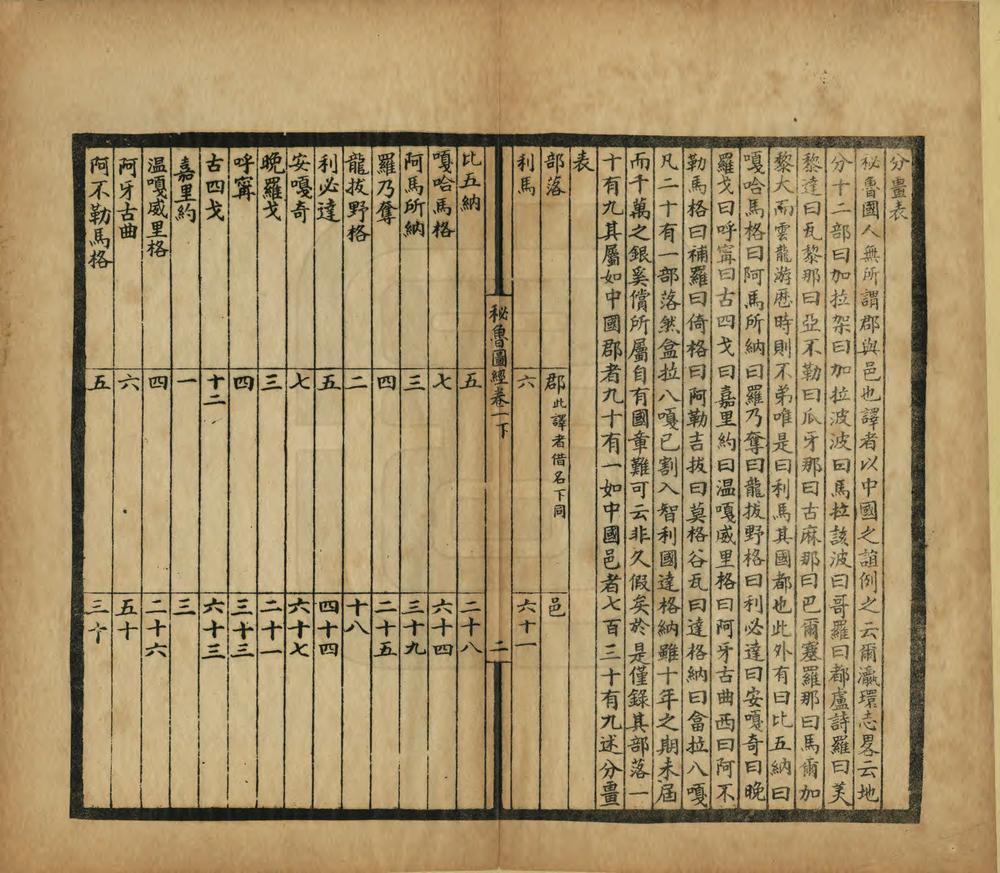 分畺表
秘魯國人無所謂郡與邑也譯者以中國之誼例之云爾瀛環志畧云地
分十二部曰加拉架曰加拉波波曰馬拉該波曰哥羅曰都盧詩羅曰美
黎達曰瓦黎那曰亞不勒曰瓜牙那曰古麻那曰巴爾塞羅那曰馬爾加
黎大而雲龍游歷時則不弟唯是曰利馬其國都也此外有曰比五納曰
嘎哈馬格曰阿馬所納曰羅乃奪曰龍拔野格曰利必達曰安嘎奇曰晚
羅戈曰呼甯曰古四戈曰嘉里約曰温嘎威里格曰阿牙古曲西曰阿不
勒馬格曰補羅曰倚格曰阿勒吉拔曰莫格谷瓦曰達格納曰畣拉八嘎
凡二十有一部落然畣拉八嘎已割入智利國達格納雖十年之期未屆
而千萬之銀奚償所屬自有國章難可云非久假矣於是僅錄其部落一
十有九其屬如中國郡者九十有一如中國邑者七百三十有九述分畺
表
部落 郡此譯者借名下同 邑
利馬 六 六十一
秘魯圖經卷一下 二
比五納 五 二十八
嘎哈馬格 七 六十四
阿馬所納 三 三十九
羅乃奪 四 二十五
龍拔野格 二 十八
利必達 五 四十四
安嘎奇 七 六十七
晚羅戈 三 二十一
呼甯 四 三十三
古四戈 十二 六十三
嘉里約 一 三
温嘎威里格 四 二十六
阿牙古曲 六 五十
阿不勒馬格 五 三十